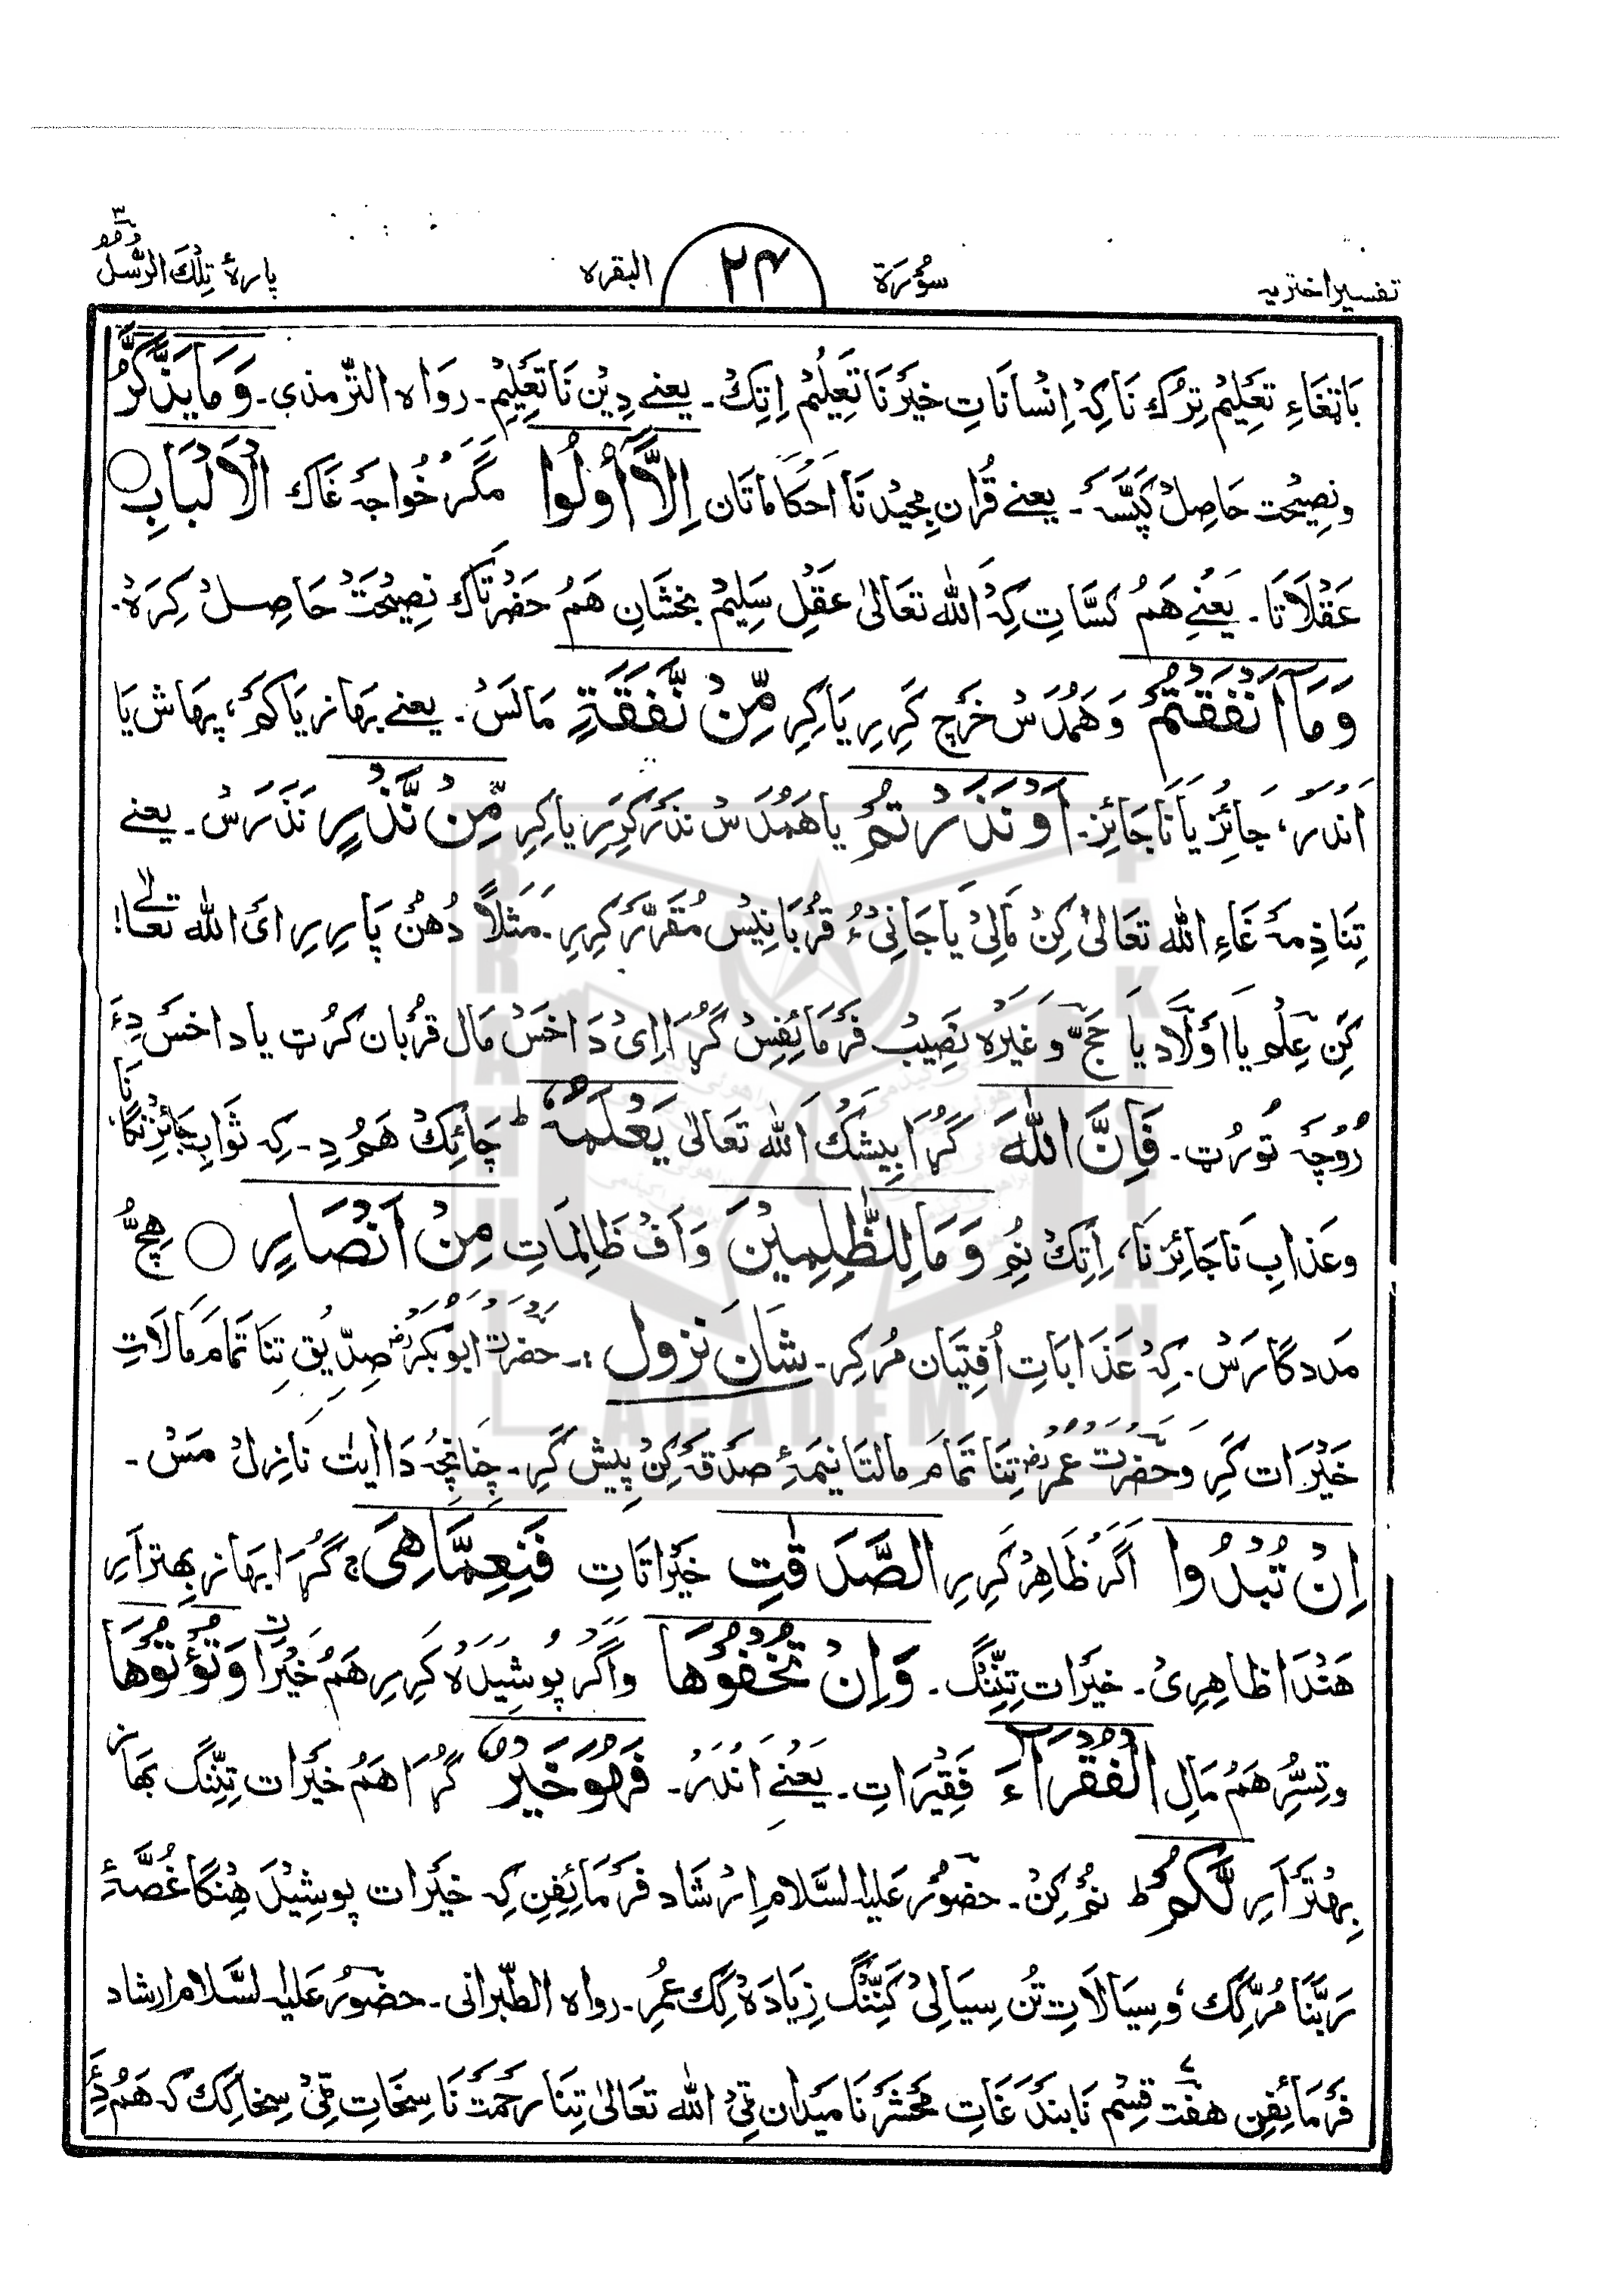 تفسیر اختریہ سُوۡرَة ۲۴ البقرہ پارۂ تِلۡكَ الرُّسُل ۳
بَاتغَاءِ تعَلِیۡم تِرُك نَاکِہۡ اِنۡسانَاتِ خیَرنَا تعِلیۡم اِتِکۡ۔ یعنے دِیۡن نَا تَعۡلِیۡم۔ رَوَاہ التّرمذی۔ وَمَا یَذَّكَّرُ
ونصِیۡحت حَاصِلۡ کَپّسَہ۔ یعنے قُرانِ مجِیۡد نَا احکامَاتَان اِلَّاۤ اُولُوا مگر خُواجہ غَاك الۡاَلۡبَابِ
عَقۡلَاتَا۔ یَعۡنے هَمُ کسَّاتِ کِہ اَللّٰه تعَالیٰ عَقۡلِ سَلِیۡم بخشَانِ هَمُ حَضۡرتَاك نصِیۡحَتۡ حَاصِلۡ کِرَہ۔
وَمَاۤ اَنۡفَقۡتُمۡ وَهَمۡدَسۡ خَرَچ کَرِیرِ یَا کِرِ مِّنۡ نَّفَقَةٍ مَالَسۡ۔ یعنے بہَاز یَا کَمۡ، پہَاش یَا
اَندَر، جَائِز یَا نَاجَائِز۔ اَوۡ نَذَرۡتُمۡ یا هَمُدَسۡ نذَر کَرِیرِ یا کِرِ مِّنۡ نَّذۡرٍ نَذَرَسۡ۔ یعنے
تِنَا ذِمہ غَاءِ اللّٰه تعَالیٰ کِنۡ مَالِیۡ یَا جَانِیۡ ءُ قُرۡبَانِیۡس مُقَرَّر کَرِیرِ۔ مَثَلاً دُهُنۡ پَارِیرِ اَیۡ اللّٰه تَعَالےٰ!
کَنِ عِلۡم یَا اَوۡلَاد یَا حَجّ وَغَیۡرَہ نَصِیۡبۡ فَرۡمَائِفِسۡ گُڑَا اِیۡ دَاخَسۡ مَال قُربَان کَرُت یا داخسۡ دِءَ
رُوۡچَہ توۡرُت۔ فَاِنَّ اللّٰهَ گُڑَا بِیۡشَكۡ اَللّٰه تَعَالیٰ یَعۡلَمُهٗ ط چَائِکۡ هَمُ دِ۔ کِہ ثَوَابِ جَائِزنَگا نَا
وعَذابِ نَاجَائِزنَا، اِتِکۡ نُمۡ وَمَا لِلظّٰلِمِیۡنَ وَ اَفۡ ظَالِمَاتِ مِنۡ اَنۡصَارٍ هِچُّ
مَدَدگارَسۡ۔ کِہۡ عَذَابَاتِ اُفتِیَان مُرکِر۔ شَانَ نزول :۔ حضرت ابوبکر صِدّیۡق تِنَا تمَامَ مَالَاتِ
خَیۡرَات کَرِ وَحَضۡرتِ عمرؓ تِنَا تمَامَ مالتَا نیمۂ صدَقہ کِنۡ پِیۡش کَرِ۔ چنانچہ دَا اٰیٰت نازِلۡ مَسۡ۔
اِنۡ تُبۡدُوا اَگَر ظَاهِر کَرِیرِ الصَّدَقٰتِ خَیۡرَاتَاتِ فَنِعِمَّا هِیَ ۚ گُڑا بہَاز بِهتر اَرِ
هَنۡدَا ظَاهِرِیۡ۔ خیَرَات تِنِّنگ۔ وَاِنۡ تُخۡفُوۡهَا وَاگَر پوشِیۡدَہ کَرِیرِ هَمُ خَیۡرَات وَتُؤۡتُوۡهَا
وتِسُّرِ هَمُ مَالِ الۡفُقَرَآءَ فَقِیۡرَاتِ۔ یَعۡنے اَنۡدَرۡ۔ فَهُوَ خَیۡرٌ گُڑَا هَمُ خَیۡرَات تِنِّنگ بهَاز
بِهۡتَر اَرِ لَّكُمۡ ط نُم کِنۡ۔ حضوۡر عَلیہ السَّلام اِرۡشَاد فَرۡمَائِفِن کِہ خَیۡرات پوشِیۡل هِنگا غُصَّۂِ
رَبَّنَا مُرِّکِك، وَسِیَالَاتِ تُن سِیَالِیۡ کَنِّنگ زِیَادَہ کِك عمُرِ۔ رواہ الطّبرانی۔ حضوُر عَلیہ لسَّلام ارشاد
فَرۡمَائِفِن هفت قِسۡم نَا بندَغَاتِ محۡشَر نَا میَدان قِیۡ اللّٰه تعَالیٰ تِنَا رحمَت نَا سِخَاتِ قِیۡ سِخاکِك کہ هَمُ دِءَ